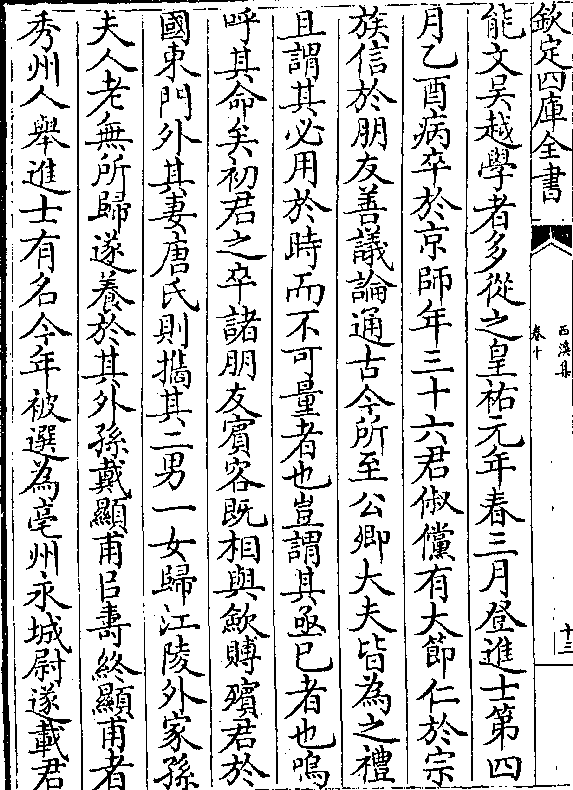 欽定四庫全書
西溪集
卷十
十三
能文吳越學者多從之皇祐元年春三月登進士第四
月乙酉病卒於京師年三十六君俶儻有大節仁於宗
族信於朋友善議論通古今所至公卿大夫皆為之禮
且謂其必用於時而不可量者也豈謂其亟已者也嗚
呼其命矣初君之卒諸朋友賓客既相與斂賻殯君於
國東門外其妻唐氏則攜其二男一女歸江陵外家孫
夫人老無所歸遂養於其外孫戴顯甫㠯壽終顯甫者
秀州人舉進士有名今年被選為亳州永城尉遂載君